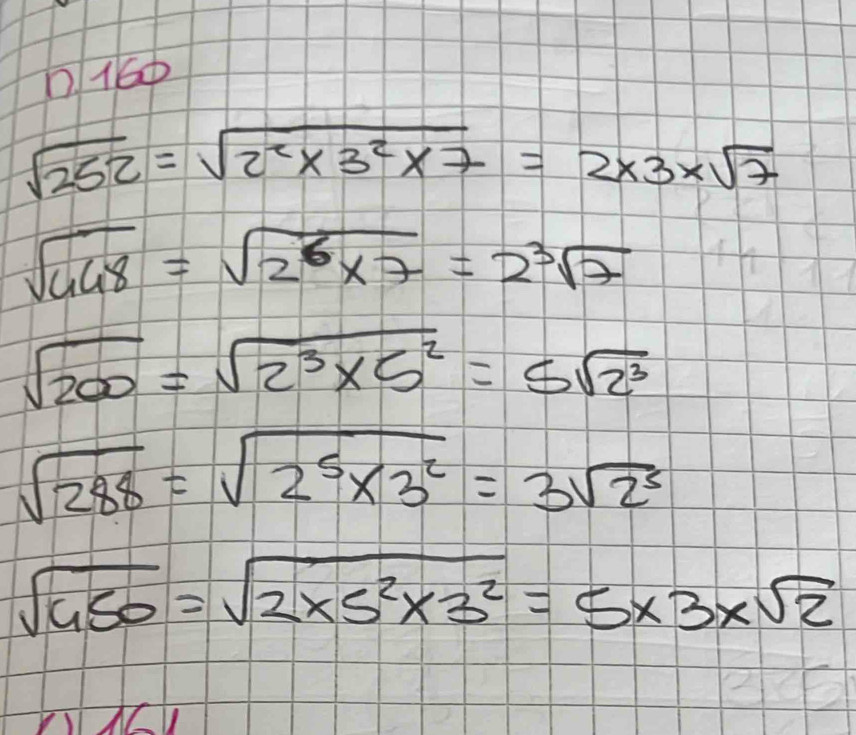 n 160
√252 = √2² × 3² × 7 = 2×3×√7
√448 = √2⁶ × 7 = 2³√7
√200 = √2³ × 5² = 5√2³
√288 = √2⁵ × 3² = 3√2⁵
√450 = √2 × 5² × 3² = 5×3×√2
n 161